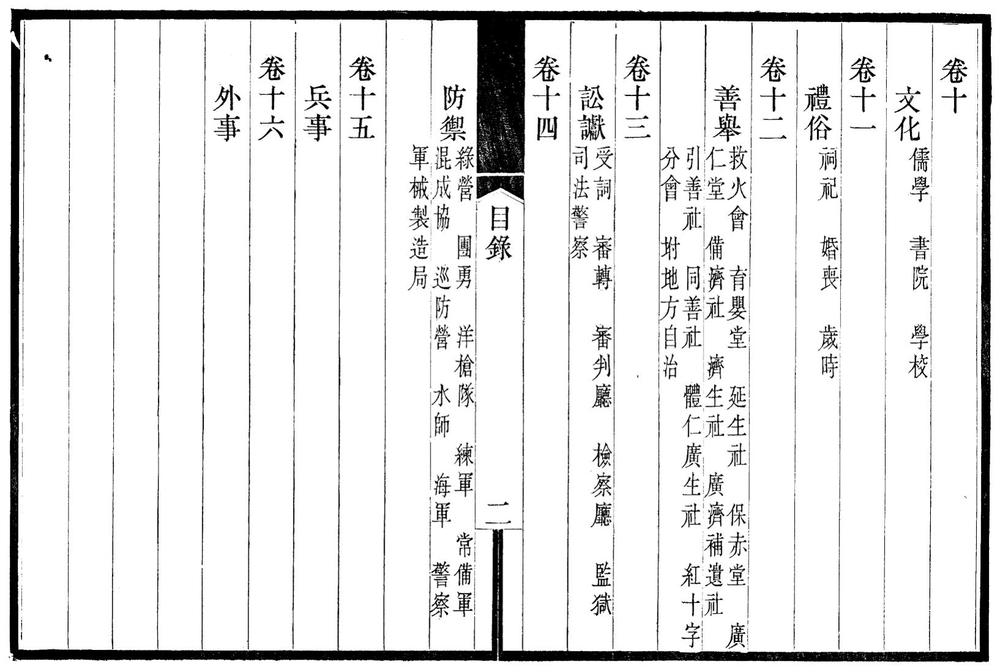 卷十
文化 儒學 書院 學校
卷十一
禮俗 祠祀 婚喪 歲時
卷十二
善舉 救火會 育嬰堂 延生社 保赤堂 廣
仁堂 備濟社 濟生社 廣濟補遺社
引善社 同善社 體仁廣生社 紅十字
分會 坿地方自治
卷十三
訟讞 受詞 審轉 審判廳 檢察廳 監獄
司法警察
卷十四
目錄
二
防禦 綠營 團勇 洋槍隊 練軍 常備軍
混成協 巡防營 水師 海軍 警察
軍械製造局
卷十五
兵事
卷十六
外事